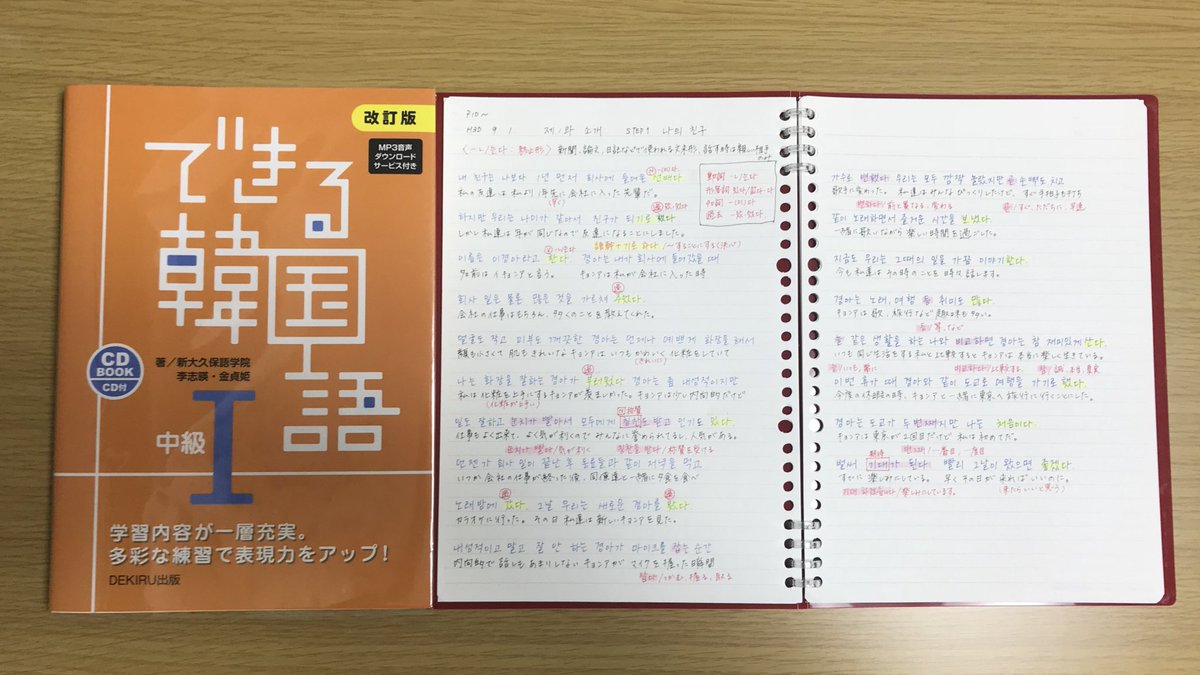 改訂版
MP3音声
ダウンロード
サービス付き
できる
韓国語
CD
BOOK
CD付
著/新大久保語学院
李志暎・金貞姫
中級
I
学習内容が一層充実。
多彩な練習で表現力をアップ!
DEKIRU出版
P10~
H30 9 1 제1과 소개 STEP1 나의 친구
내 친구는 나보다 1년 먼저 회사에 들어온 선배다.
私の友達は私より1年先に会社に入った先輩だ。
하지만 우리는 나이가 같아서 친구가 되기로 했다
しかし私達は年が同じなので友達になることにしました。
이름은 이경아라고 한다. 경아는 내가 회사에 들어갔을 때
名前はイキョンアと言う。 キョンアは私が会社に入った時
회사 일은 물론 많은 것을 가르쳐 주었다.
会社の仕事はもちろん、多くのことを教えてくれた。
얼굴도 작고 피부도 깨끗한 경아는 언제나 예쁘게 화장을 해서
顔も小さくて肌もきれいなキョンアはいつもかわいく化粧をしていて
나는 화장을 잘하는 경아가 부러웠다 경아는 좀 내성적이지만
私は化粧を上手にするキョンアが羨ましかった。キョンアは少し内向的だけど
일도 잘하고 눈치가 빨라서 모두에게 칭찬도 받고 인기도 있다.
仕事もよく出来て、よく気が利くのでみんなに誉められるし、人気がある。
언젠가 회사 일이 끝난 후 동료들과 같이 저녁을 먹고
いつか会社の仕事が終った後、同僚達と一緒に夕食を食べ
노래방에 갔다. 그날 우리는 새로운 경아를 봤다.
カラオケに行った。その日私達は新しいキョンアを見た。
내성적이고 말고 잘 안 하는 경아가 마이크를 잡는 순간
内向的で話しもあまりしないキョンアがマイクを握った瞬間
가수로 변했다. 우리는 모두 깜짝 놀랐지만 손뼉도 치고
歌手に変わった。私達はみんなびっくりしたけど、すぐ手拍子も打ち
같이 노래하면서 즐거운 시간을 보냈다.
一緒に歌いながら楽しい時間を過ごした。
지금도 우리는 그때의 일을 가끔 이야기한다.
今も私達はその時のことを時々話します。
경아는 노래, 여행 등 취미도 많다.
キョンアは歌、旅行など趣味も多い。
늘 같은 생활을 하는 나와 비교하면 경아는 참 재미있게 산다.
いつも同じ生活をする私と比較するとキョンアは本当に楽しく生きている。
이번 휴가 때 경아와 같이 도쿄로 여행을 가기로 했다.
今度の休暇の時、キョンアと一緒に東京へ旅行に行くことにした。
경아는 도쿄가 두 번째지만 나는 처음이다.
キョンアは東京が2回目だけど私は初めてだ。
벌써 기대가 된다. 빨리 그날이 왔으면 좋겠다.
すでに楽しみにしている。 早くその日が来ればいいのに。